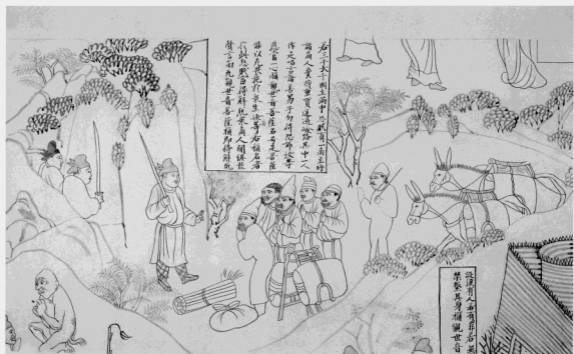 若三千大千國土滿中怨賊有一商主將
諸商人賷持重寶經過嶮路其中一人
作是唱言諸善男子勿得恐怖汝等
應當一心稱觀世音菩薩名号是菩薩
能以无畏施於衆生汝等若稱名者
於此怨賊當得解脫衆商人聞俱發
聲言南无觀世音菩薩稱即得解脫
設復有人若有罪若無
禁繫其身稱觀世音